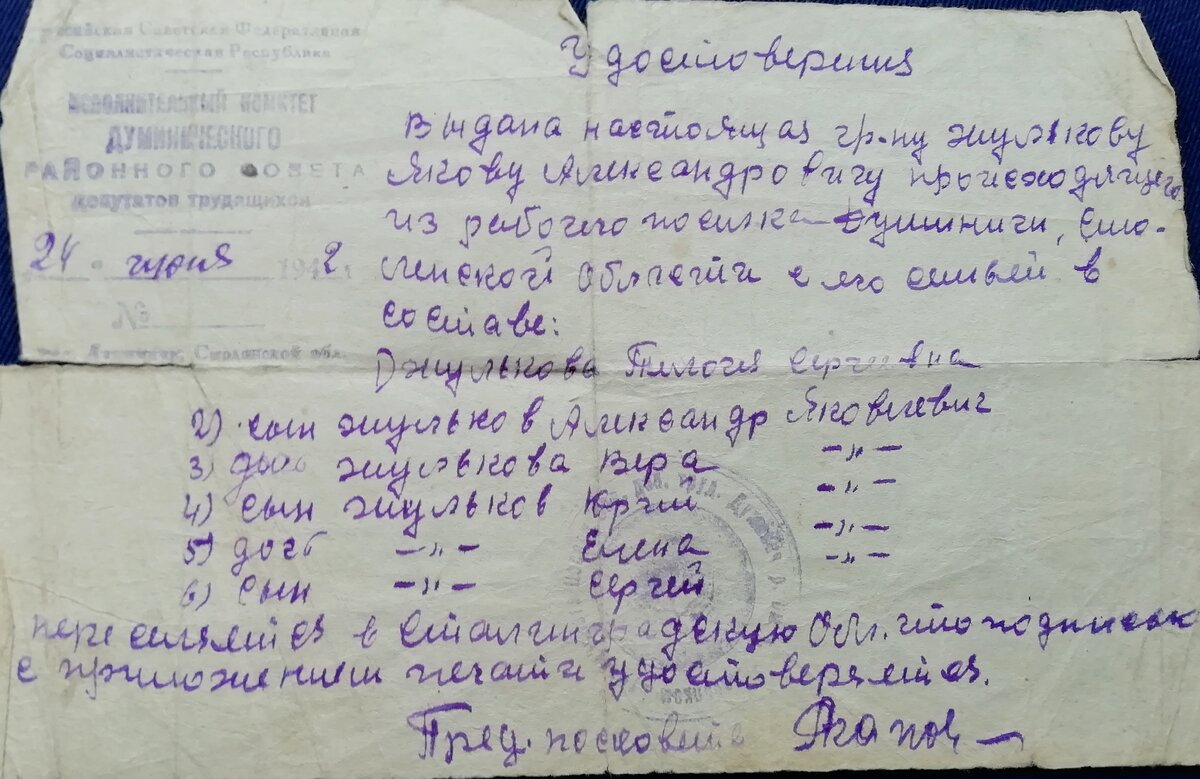 Российская Советская Федеративная
Социалистическая Республика
ИСПОЛНИТЕЛЬНЫЙ КОМИТЕТ
ДУМИНИЧЕСКОГО
РАЙОННОГО СОВЕТА
депутатов трудящихся
24 " июня 1942 г.
№
Думиничи, Смоленской обл.
Удостоверения
Выдана настоящая гр-ну Жулькову
Якову Александровичу происходящего
из рабочего поселка Думиничи, Смо-
ленской области с его семьей в
составе:
1) Жулькова Пелогия Сергеевна
2) сын Жульков Александр Яковлевич
3) дочь Жулькова Вера —„—
4) сын Жульков Юрий —„—
5) дочь —„— Елена —„—
6) сын —„— Сергей —„—
переселяется в Сталинградскую Обл. что подписью
с приложением печати удостоверяется.
Пред. поссовета Агапов